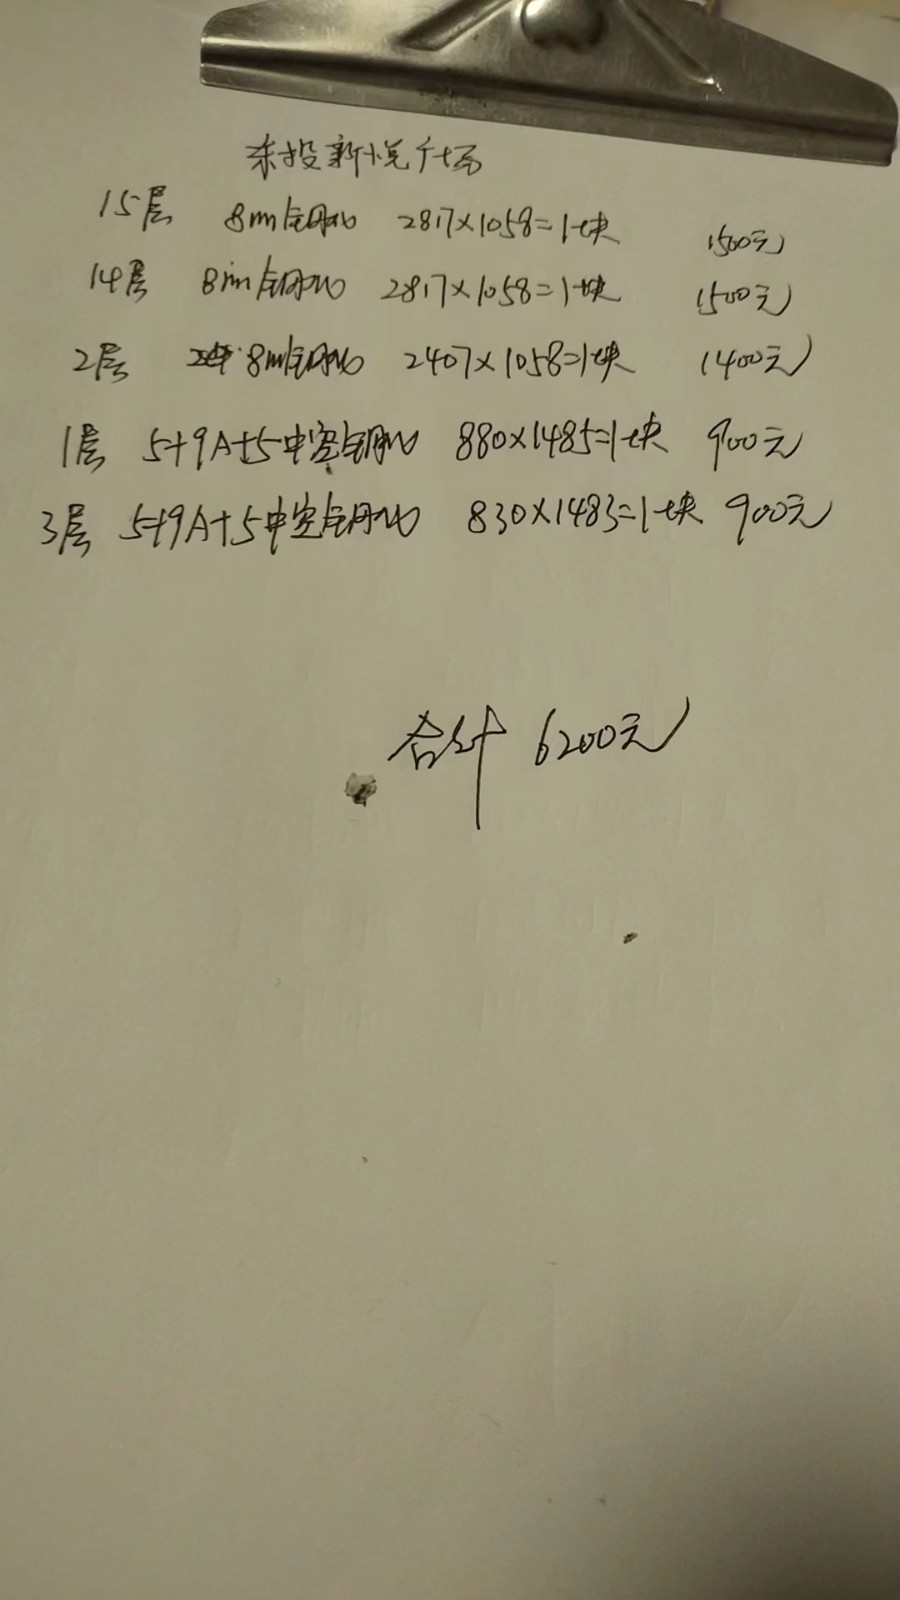 东投新悦广场
15层 8mm钢化 2817×1058=1块 1500元
14层 8mm钢化 2817×1058=1块 1500元
2层 8m钢化 2407×1058=1块 1400元
1层 5+9A+5中空钢化 880×1485=1块 900元
3层 5+9A+5中空钢化 830×1483=1块 900元
合计 6200元